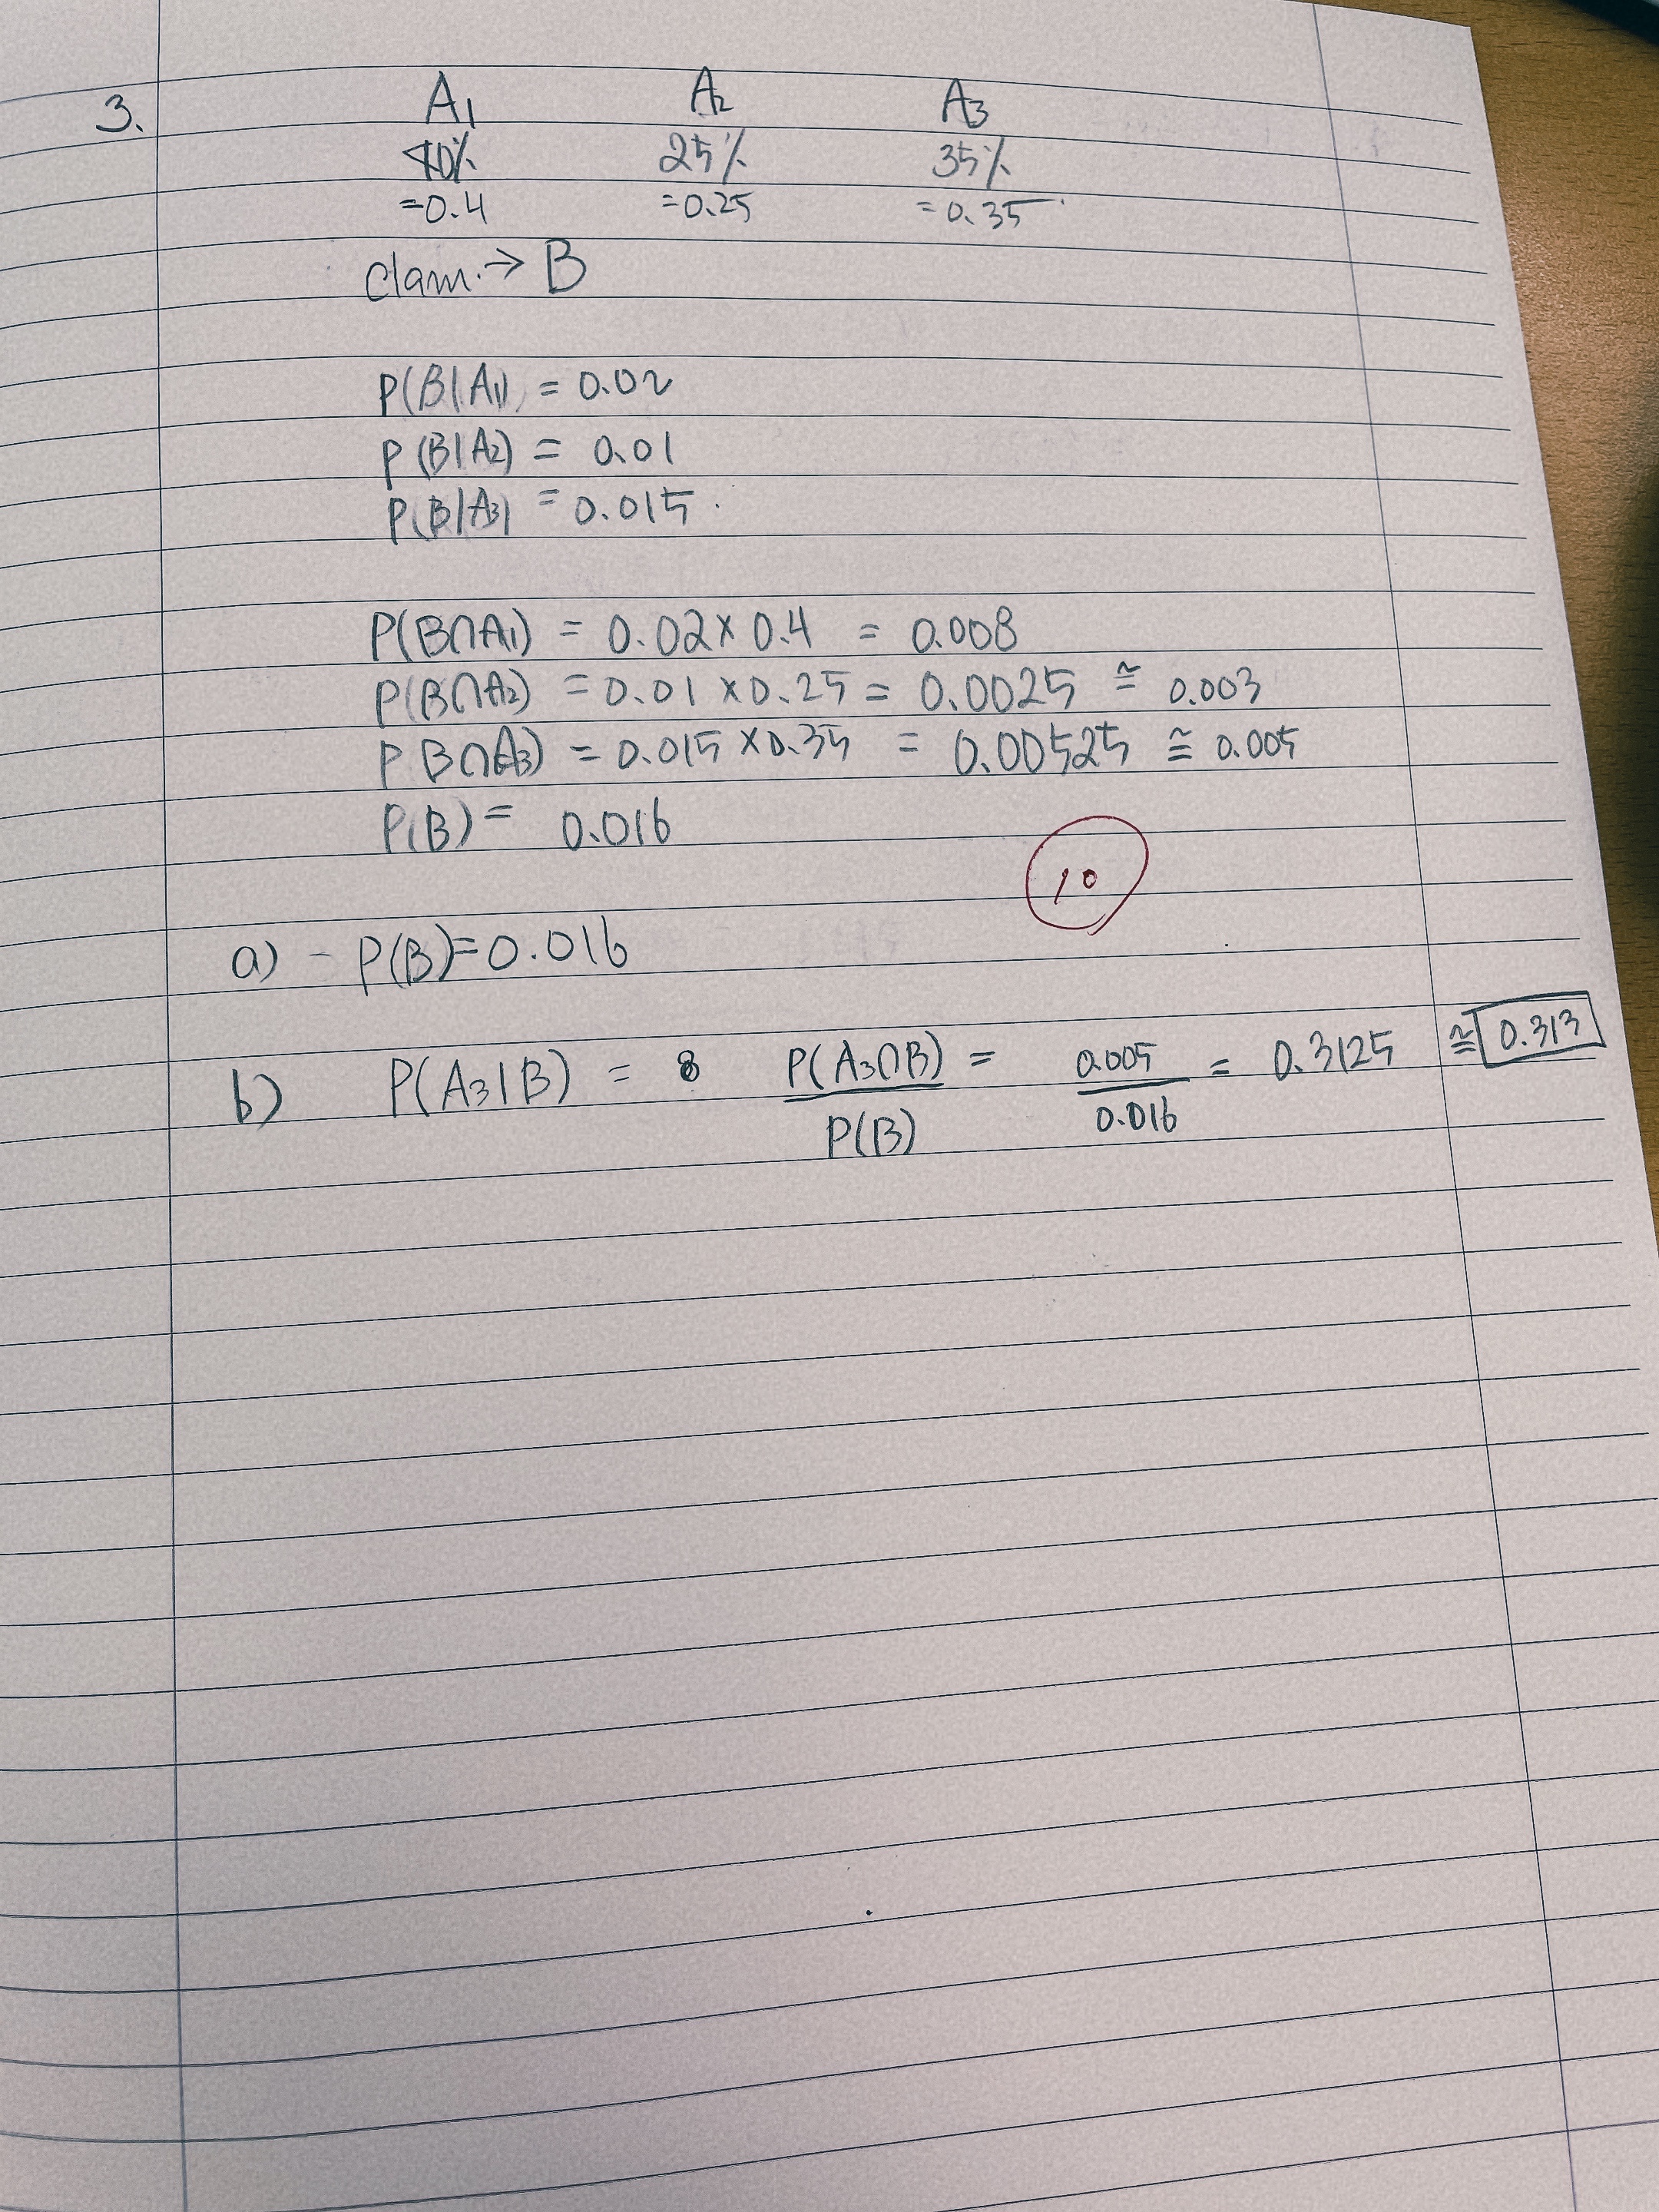 3. A1 A2 A3
40% 25% 35%
=0.4 =0.25 =0.35
clam. → B
P(B|A1) = 0.02
P(B|A2) = 0.01
P(B|A3) = 0.015
P(B∩A1) = 0.02 × 0.4 = 0.008
P(B∩A2) = 0.01 × 0.25 = 0.0025 ≅ 0.003
P B∩A3) = 0.015 × 0.35 = 0.00525 ≅ 0.005
P(B) = 0.016
10
a) - P(B)=0.016
b) P(A3|B) = 8 P(A3∩B) / P(B) = 0.005 / 0.016 = 0.3125 ≅ 0.313